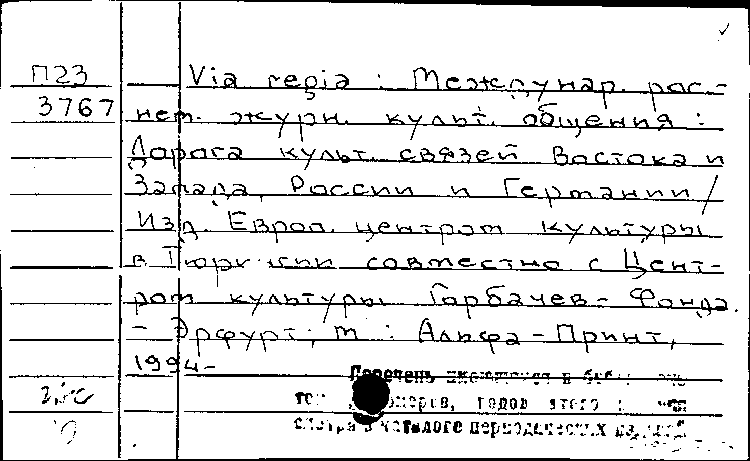 П23
3767
Via regia : Междунар. рос-
нем. журн. культ. общения :
Дорога культ. связей Востока и
Запада, России и Германии /
Изд. Европ. центром культуры
в Тюрингии совместно с Цент-
ром культуры Горбачев-Фонда.
- Эрфурт; М : Альфа-Принт,
1994-
Перечень имеющихся в
номеров, годов этого
смотри в каталоге периодических изданий